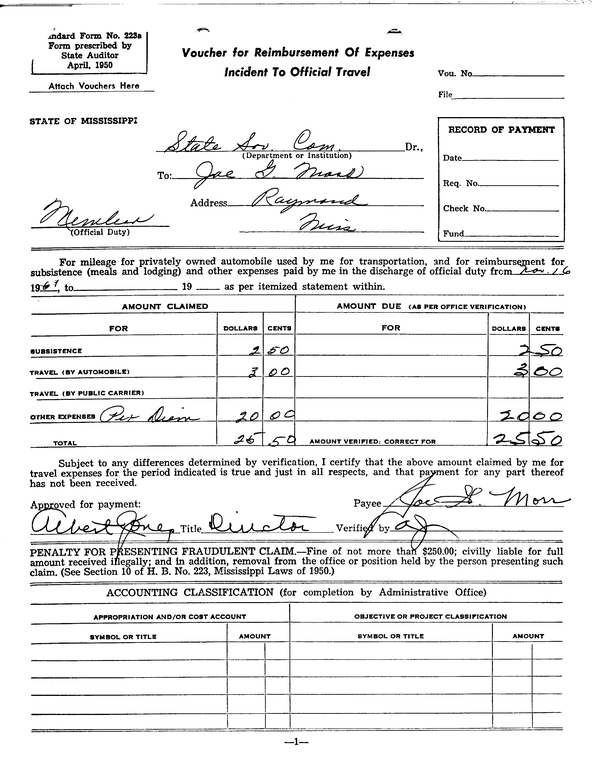 ndard Form No. 223a
Form prescribed by
State Auditor
April, 1950
Attach Vouchers Here
Voucher for Reimbursement Of Expenses
Incident To Official Travel
Vou. No.
File
STATE OF MISSISSIPPI
State Sov. Com. Dr.,
(Department or Institution)
To: Joe G. Moss
Address Raymond
Miss
Member
(Official Duty)
RECORD OF PAYMENT
Date
Req. No.
Check No.
Fund
For mileage for privately owned automobile used by me for transportation, and for reimbursement for
subsistence (meals and lodging) and other expenses paid by me in the discharge of official duty from Nov. 16
1961, to 19 as per itemized statement within.
AMOUNT CLAIMED AMOUNT DUE (AS PER OFFICE VERIFICATION)
FOR DOLLARS CENTS FOR DOLLARS CENTS
SUBSISTENCE 2 50 2 50
TRAVEL (BY AUTOMOBILE) 3 00 3 00
TRAVEL (BY PUBLIC CARRIER)
OTHER EXPENSES Per Diem 20 00 20 00
TOTAL 25 50 AMOUNT VERIFIED: CORRECT FOR 25 50
Subject to any differences determined by verification, I certify that the above amount claimed by me for
travel expenses for the period indicated is true and just in all respects, and that payment for any part thereof
has not been received.
Approved for payment: Payee Joe G. Moss
Albert Jones Title Director Verified by aJ
PENALTY FOR PRESENTING FRAUDULENT CLAIM.—Fine of not more than $250.00; civilly liable for full
amount received illegally; and in addition, removal from the office or position held by the person presenting such
claim. (See Section 10 of H. B. No. 223, Mississippi Laws of 1950.)
ACCOUNTING CLASSIFICATION (for completion by Administrative Office)
APPROPRIATION AND/OR COST ACCOUNT OBJECTIVE OR PROJECT CLASSIFICATION
SYMBOL OR TITLE AMOUNT SYMBOL OR TITLE AMOUNT
—1—